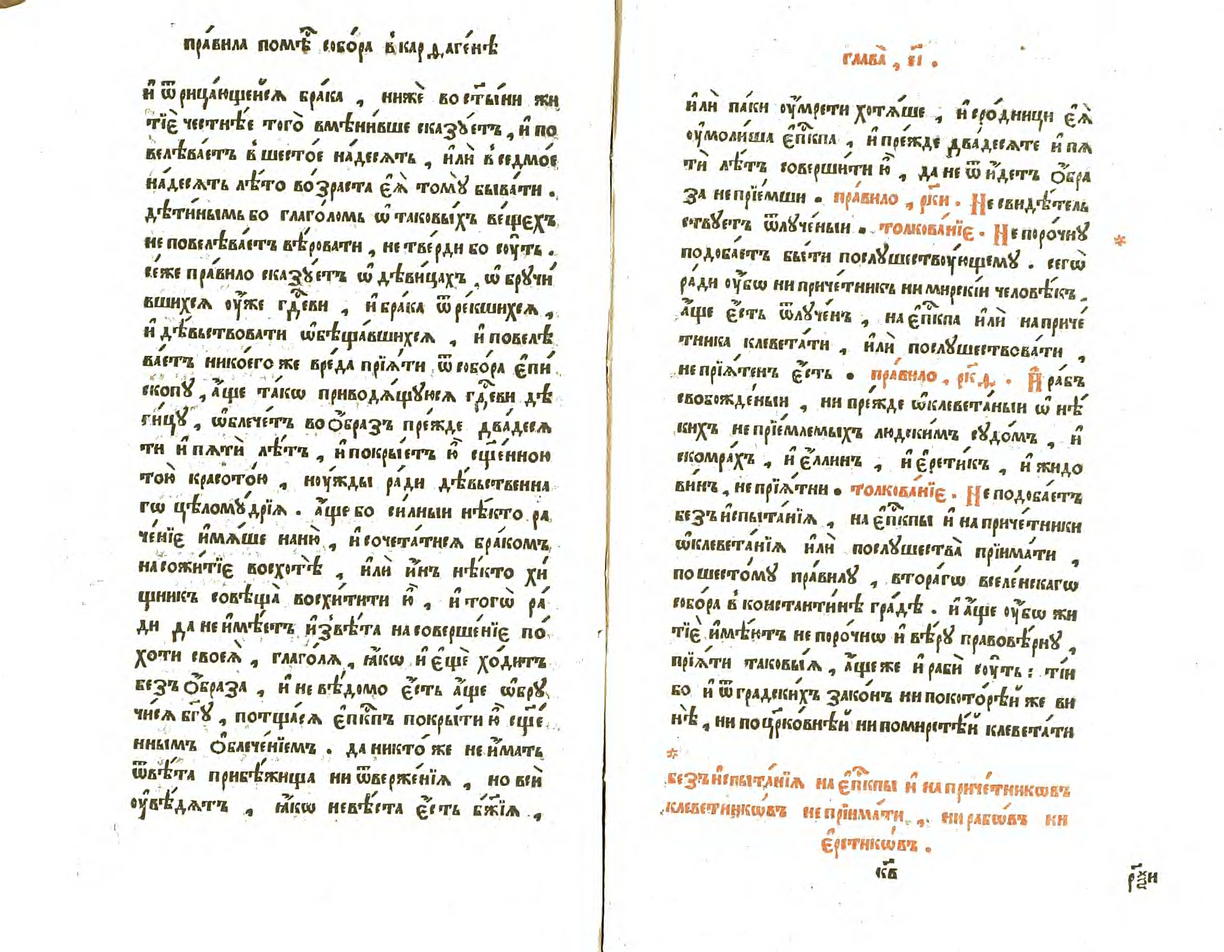 пра́вила помѣ́ собо́ра в̾кардаге́нѣ
и҆ ѿрица́ющейсѧ бра́ка , нижѐ во ст҃ы́ни жи
тїѐ честнѣ́е того̀ вмѣни́вше сказꙋ́етъ , и҆ по
велѣва́етъ в̾шесто́е на́десѧть , и҆лѝ в̾седмо́е
на́десѧть лѣ́то во́зраста є҆ѧ̀ томꙋ̀ быва́ти .
дѣти́нымъ бо глаго́ломъ ѡ҆ таковы́хъ ве́щехъ
не повелѣва́етъ вѣ́ровати , не тве́рди бо сꙋ́ть .
се́же пра́вило сказꙋ́етъ ѡ҆ дѣви́цахъ , ѡ҆брꙋчи́
вшихсѧ ᲂу҆́же гд҇еви , и҆ бра́ка ѿре́кшихсѧ ,
и҆ дѣ́вьствовати ѡ҆бѣща́вшихсѧ , и҆ повелѣ
ва́етъ никоего́же вре́да прїѧ́ти ѿ собо́ра є҆пи́
скопꙋ , а҆́ще та́кѡ приводѧ́щꙋюсѧ гд҇еви дѣ
ви́цꙋ , ѡ҆блече́тъ во ѻ҆́бразъ пре́жде два́десѧ
ти и҆ пѧтѝ лѣ́тъ , и҆ покры́етъ ю҆̀ сщ҃е́нною
то́ю красото́ю , нꙋ́жды ра́ди дѣ́вьственна
гѡ цѣломꙋ́дрїѧ . а҆́ще бо си́льныи нѣ́кто ра
че́нїе и҆мѧ́ше на ню̀ , и҆ сочета́тисѧ бра́комъ
на сожи́тїе восхотѣ̀ , и҆лѝ и҆́нъ нѣ́кто хи́
щникъ совѣща̀ восхи́тити ю҆̀ , и҆ тогѡ̀ ра́
ди да не и҆мѣ́етъ и҆звѣ́та на соверше́нїе по́
хоти своеѧ̀ , глаго́лѧ , ꙗ҆́кѡ и҆ є҆щѐ хо́дитъ
безъ ѻ҆́браза , и҆ не вѣ́домо є҆́сть а҆́ще ѡ҆брꙋ
чи́сѧ бг҃ꙋ , потща́сѧ є҆пⷭ҇кпъ покры́ти ю҆̀ сщ҃е́
ннымъ ѻ҆блече́нїемъ . да никто́же не и҆́мать
ѿвѣ́та прибѣ́жища ни ѿверже́нїѧ , но всѝ
ᲂу҆вѣ́дѧтъ , ꙗ҆́кѡ невѣ́ста є҆́сть бж҃їѧ ,
глава̀ , є҃і .
и҆лѝ па́ки ᲂу҆мре́ти хотѧ́ше , и҆ сро́дницы є҆ѧ̀
ᲂу҆моли́ша є҆пⷭ҇кпа , и҆ пре́жде два́десѧте и҆ пѧ
тѝ лѣ́тъ соверши́ти ю҆̀ , да не ѿи́детъ ѻ҆́бра
за не прїе́мши . пра́вило , рк҃и . Не свидѣ́тель
ствꙋетъ ѿлꙋче́ныи . толкова́нїе . Не поро́чнꙋ
подоба́етъ бы́ти послꙋ́шествꙋющемꙋ . сегѡ̀
ра́ди ᲂу҆́бѡ ни приче́тникъ ни мирскі́и человѣ́къ ,
а҆́ще є҆́сть ѿлꙋче́нъ , на є҆пⷭ҇кпа и҆лѝ на приче́
тника клевета́ти , и҆лѝ послꙋ́шествовати ,
не прїѧ́тенъ є҆́сть . пра́вило , рк҃д . И҆ ра́бъ
свобожде́ныи , ни пре́жде ѡ҆клевета́ныи ѡ҆ нѣ́
кихъ не прїе́млемыхъ людски́мъ сꙋдо́мъ , и҆
скомра́хъ , и҆ є҆́ллинъ , и҆ є҆рети́къ , и҆ жидо
ви́нъ , не прїѧ́тни . толкова́нїе . Не подоба́етъ
безъ и҆спыта́нїѧ , на є҆пⷭ҇кпы и҆ на приче́тники
ѡ҆клевета́нїѧ и҆лѝ послꙋ́шества прїима́ти ,
по шесто́мꙋ пра́вилꙋ , втора́гѡ вселе́нскагѡ
собо́ра в̾ константи́нѣ гра́дѣ . и҆ а҆́ще ᲂу҆́бѡ жи
тїѐ и҆мѣ́ютъ не поро́чнѡ и҆ вѣ́рꙋ правовѣ́рнꙋ ,
прїѧ́ти таковы́ѧ , а҆́ще же и҆ рабѝ сꙋ́ть : ті́и
бо и҆ ѿ градски́хъ зако́нъ ни по кото́рѣй же ви
нѣ̀ , ни по цр҃ко́внѣй ни по мирстѣ́й клевета́ти
*
безъ и҆спыта́нїѧ на є҆пⷭ҇кпы и҆ на приче́тникѡвъ
клеветникѡ́въ не прїима́ти , ни рабѡ́въ ни
є҆ретикѡ́въ .
*
к҃в